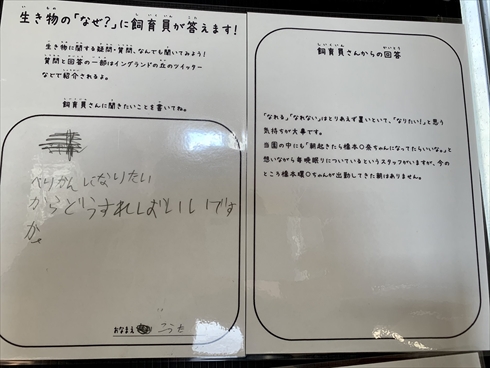 生き物の「なぜ?」に飼育員が答えます!
生き物に関する疑問・質問、なんでも聞いてみよう!
質問と回答の一部はイングランドの丘のツイッター
などで紹介されるよ。
飼育員さんに聞きたいことを書いてね。
ぺりかんになりたい
からどうすればいいです
か
おなまえ こうき
飼育員さんからの回答
「なれる」「なれない」はとりあえず置いといて、「なりたい!」と思う
気持ちが大事です。
当園の中にも「朝起きたら橋本〇奈ちゃんになってたらいいな。」と
想いながら毎晩眠りについているというスタッフがいますが、今の
ところ橋本環〇ちゃんが出勤してきた朝はありません。